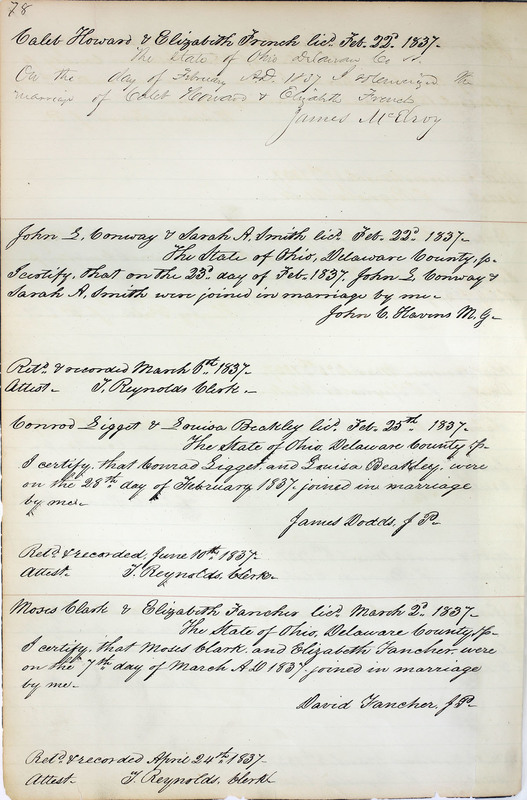 78
Caleb Howard & Elizabeth French lic.d Feb. 22.d 1837-
The State of Ohio Delaware Co ss.
On the day of February A.D. 1837 I solemnized the
marriage of Caleb Howard & Elizabeth French
James McElroy
John E. Conway & Sarah A. Smith lic.d Feb. 22.d 1837-
The State of Ohio, Delaware County, ss-
I certify, that on the 23.d day of Feb. 1837, John E. Conway &
Sarah A. Smith were joined in marriage by me-
John C. Havens M. G-
Ret.d & recorded March 6.th 1837-
Attest- T. Reynolds Clerk.-
Conrod Ligget & Louisa Beakley lic.d Feb. 25.th 1837-
The State of Ohio, Delaware County, ss-
I certify, that Conrad Ligget, and Louisa Beakley, were
on the 28.th day of February 1837, joined in marriage
by me-
James Dodds, J. P.-
Ret.d & recorded, June 10.th 1837-
Attest- T. Reynolds, Clerk-
Moses Clark & Elizabeth Fancher lic.d March 2.d 1837-
The State of Ohio, Delaware County, ss-
I certify, that Moses Clark, and Elizabeth Fancher, were
on the 7.th day of March A.D 1837, joined in marriage
by me-
David Fancher, J. P.-
Ret.d & recorded April 24.th 1837-
Attest- T. Reynolds, Clerk